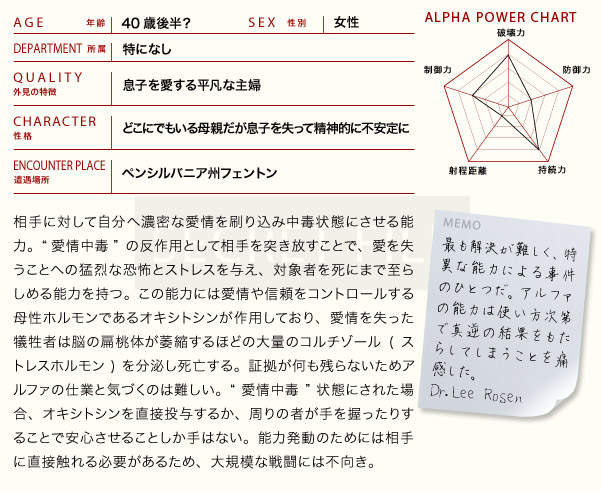 AGE 年齢 40歳後半? SEX 性別 女性
DEPARTMENT 所属 特になし
QUALITY
外見の特徴 息子を愛する平凡な主婦
CHARACTER
性格 どこにでもいる母親だが息子を失って精神的に不安定に
ENCOUNTER PLACE
遭遇場所 ペンシルバニア州フェントン
ALPHA POWER CHART
破壊力
制御力 防御力
射程距離 持続力
相手に対して自分へ濃密な愛情を刷り込み中毒状態にさせる能
力。“愛情中毒”の反作用として相手を突き放すことで、愛を失
うことへの猛烈な恐怖とストレスを与え、対象者を死にまで至ら
しめる能力を持つ。この能力には愛情や信頼をコントロールする
母性ホルモンであるオキシトシンが作用しており、愛情を失った
犠牲者は脳の扁桃体が萎縮するほどの大量のコルチゾール ( ス
トレスホルモン ) を分泌し死亡する。証拠が何も残らないためア
ルファの仕業と気づくのは難しい。“愛情中毒”状態にされた場
合、オキシトシンを直接投与するか、周りの者が手を握ったりす
ることで安心させることしか手はない。能力発動のためには相手
に直接触れる必要があるため、大規模な戦闘には不向き。
MEMO
最も解決が難しく、特
異な能力による事件
のひとつだ。アルファ
の能力は使い方次第
で真逆の結果をもた
らしてしまうことを痛
感した。
Dr. Lee Rosen